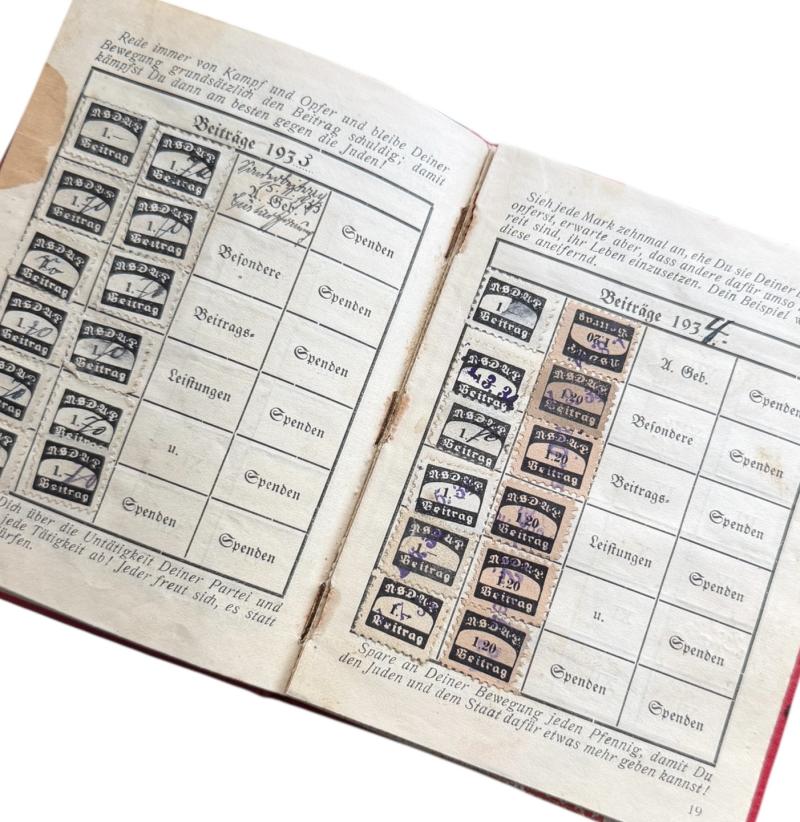 Rede immer von Kampf und Opfer und bleibe Deiner
Bewegung grundsätzlich den Beitrag schuldig; damit
kämpfst Du dann am besten gegen die Juden!
Beiträge 1933
NSDAP
1.–
Beitrag
NSDAP
1.
Beitrag
NSDAP
1.
Beitrag
NSDAP
1.
Beitrag
NSDAP
Beitrag
NSDAP
1.
Beitrag
NSDAP
1.
Beitrag
NSDAP
1.
Beitrag
Beitrag
NSDAP
1.
Beitrag
NSDAP
1.
Beitrag
A. Geb.
Besondere
Beitrags-
Leistungen
u.
Spenden
Spenden
Spenden
Spenden
Spenden
Spenden
Spenden
Dich über die Untätigkeit Deiner Partei und
jede Tätigkeit ab! Jeder freut sich, es statt
Sieh jede Mark zehnmal an, ehe Du sie Deiner
opferst, erwarte aber, dass andere dafür umso
reit sind, ihr Leben einzusetzen. Dein Beispiel
diese aneifernd.
Beiträge 1934.
NSDAP
1
Beitrag
NSDAP
Beitrag
NSDAP
1.
Beitrag
NSDAP
1.
Beitrag
NSDAP
Beitrag
NSDAP
1.
Beitrag
NSDAP
1.20
Beitrag
NSDAP
1.20
Beitrag
NSDAP
1.20
Beitrag
NSDAP
1.20
Beitrag
NSDAP
1.20
Beitrag
NSDAP
1.20
Beitrag
A. Geb.
Besondere
Beitrags-
Leistungen
u.
Spenden
Spenden
Spenden
Spenden
Spenden
Spenden
Spenden
Spare an Deiner Bewegung jeden Pfennig, damit Du
den Juden und dem Staat dafür etwas mehr geben kannst!
19